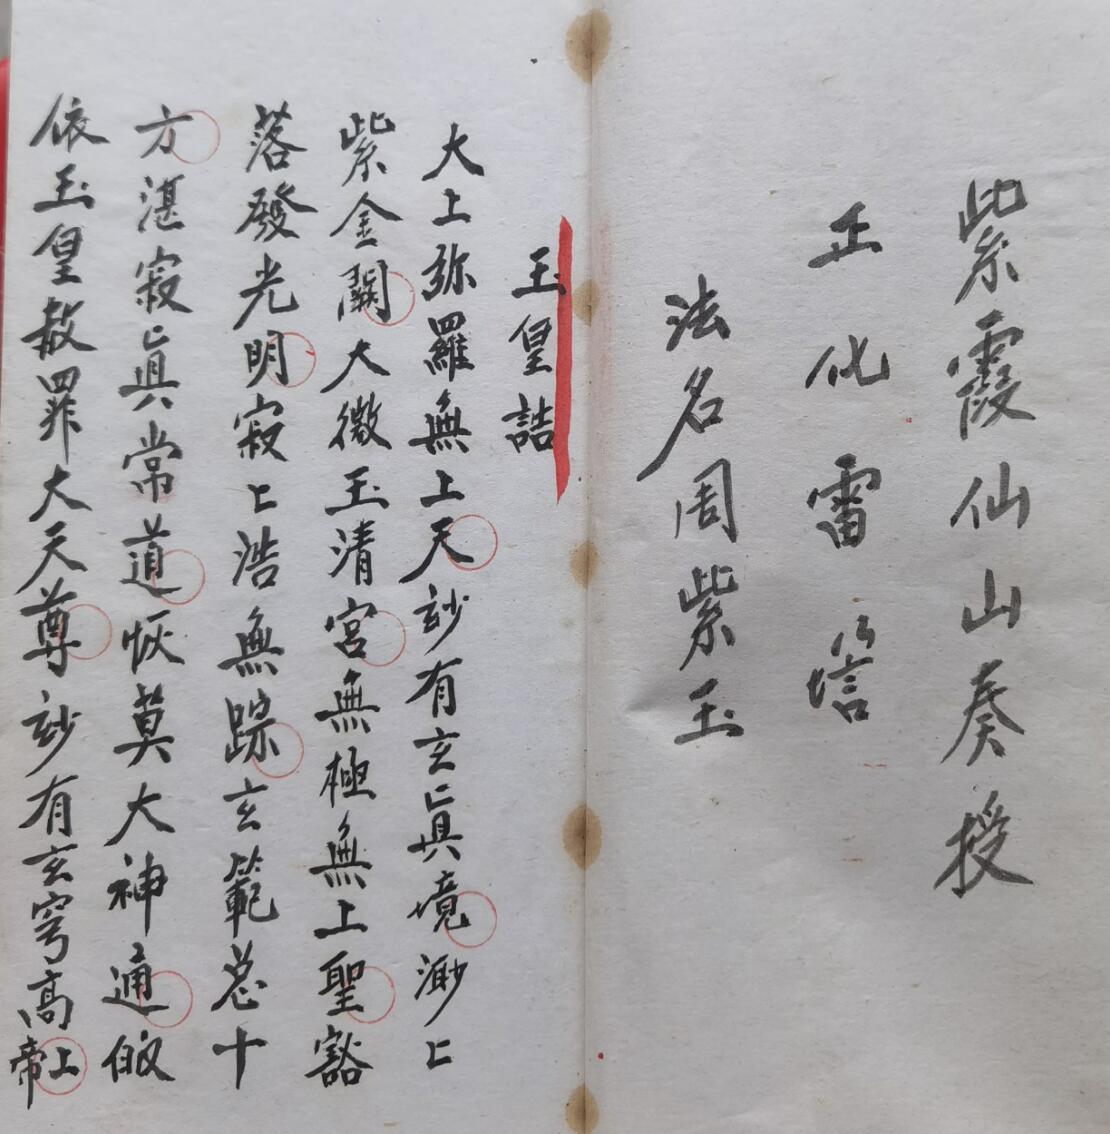 紫霞仙山奏授
正化雷
法名周紫玉
玉皇誥
大上弥羅無上天玅有玄眞境渺〻
紫金闕大微玉清宮無極無上聖豁
落發光明寂〻浩無踪玄範总十
方湛寂眞常道恢莫大神通皈
依玉皇赦罪大天尊玅有玄穹高上帝